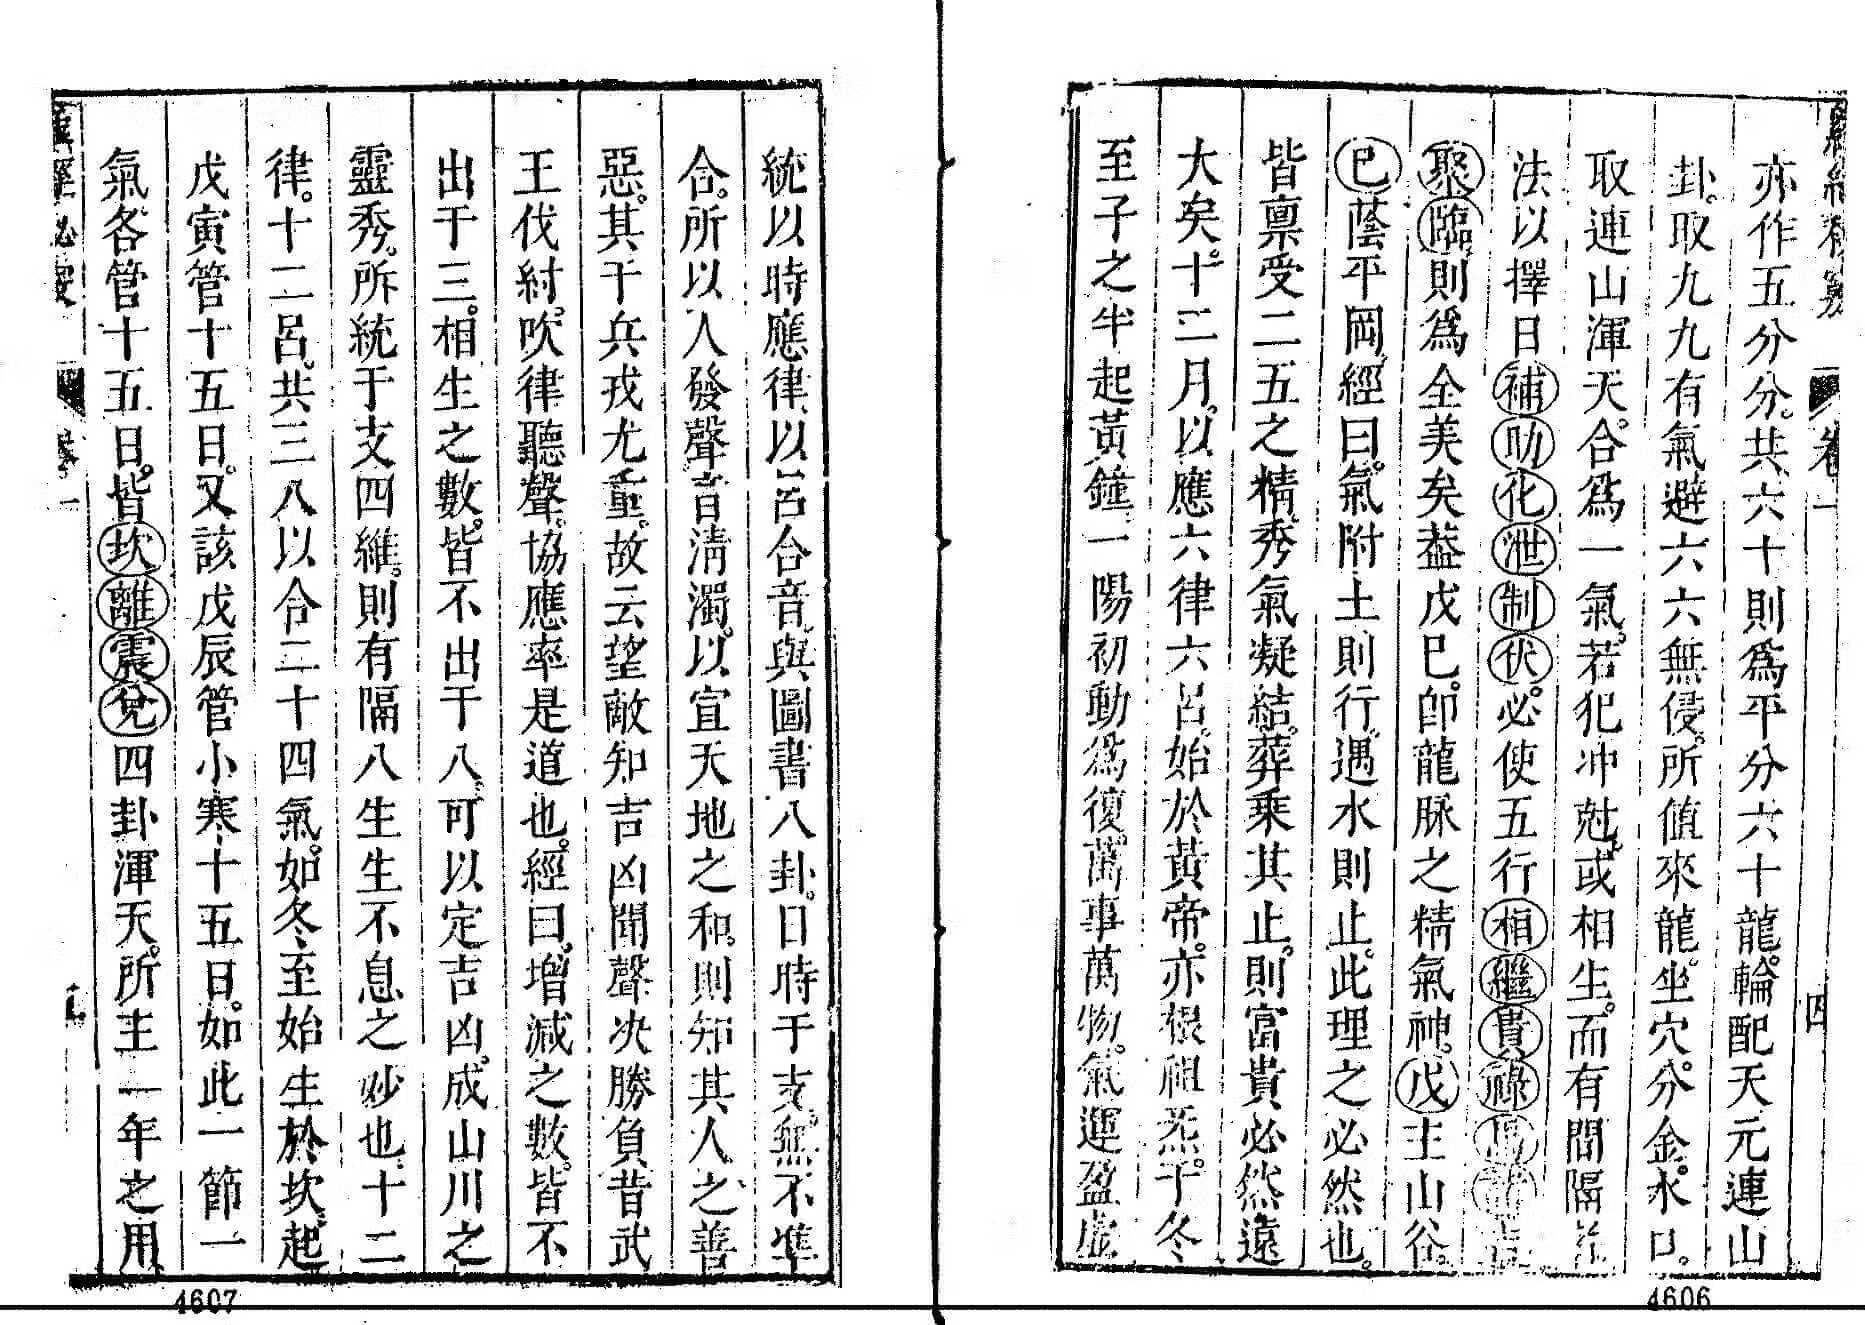 亦作五分分。共六十則爲平分六十龍。輪配天元連山
卦。取九九有氣避六六無侵。所值來龍。坐穴。分金。水口。
取連山渾天。合爲一氣。若犯冲尅。或相生。而有間隔
法以擇日補助化泄制伏。必使五行相繼貴祿
聚臨則爲全美矣葢戊巳。卽龍脉之精氣神。戊主山谷。
巳蔭平岡。經曰。氣附土則行。遇水則止。此理之必然也。
皆禀受二五之精。秀氣凝結。葬乘其止。則富貴必然遠
大矣。十二月。以應六律六呂。始於黃帝。亦根祖炁。于冬
至子之半起黃鐘一陽初動爲復。萬事萬物。氣運盈虛
四
統以時應律。以呂合音。與圖書八卦。日時于支。無不準
合。所以人發聲音清濁。以宜天地之和。則知其人之善
惡。其干兵戎尤重。故云望敵知吉凶聞聲决勝負昔武
王伐紂。吹律聽聲。協應率是道也。經曰。增減之數。皆不
出于三。相生之數。皆不出于八。可以定吉凶。成山川之
靈秀。所統于支四維。則有隔八生生不息之妙也。十二
律。十二呂。共三八以合二十四氣。如冬至始生於坎。起
戊寅管十五日。又該戊辰管小寒十五日。如此一節一
氣各管十五日。皆坎離震兌四卦渾天。所主一年之用。
卷一
4607
4606